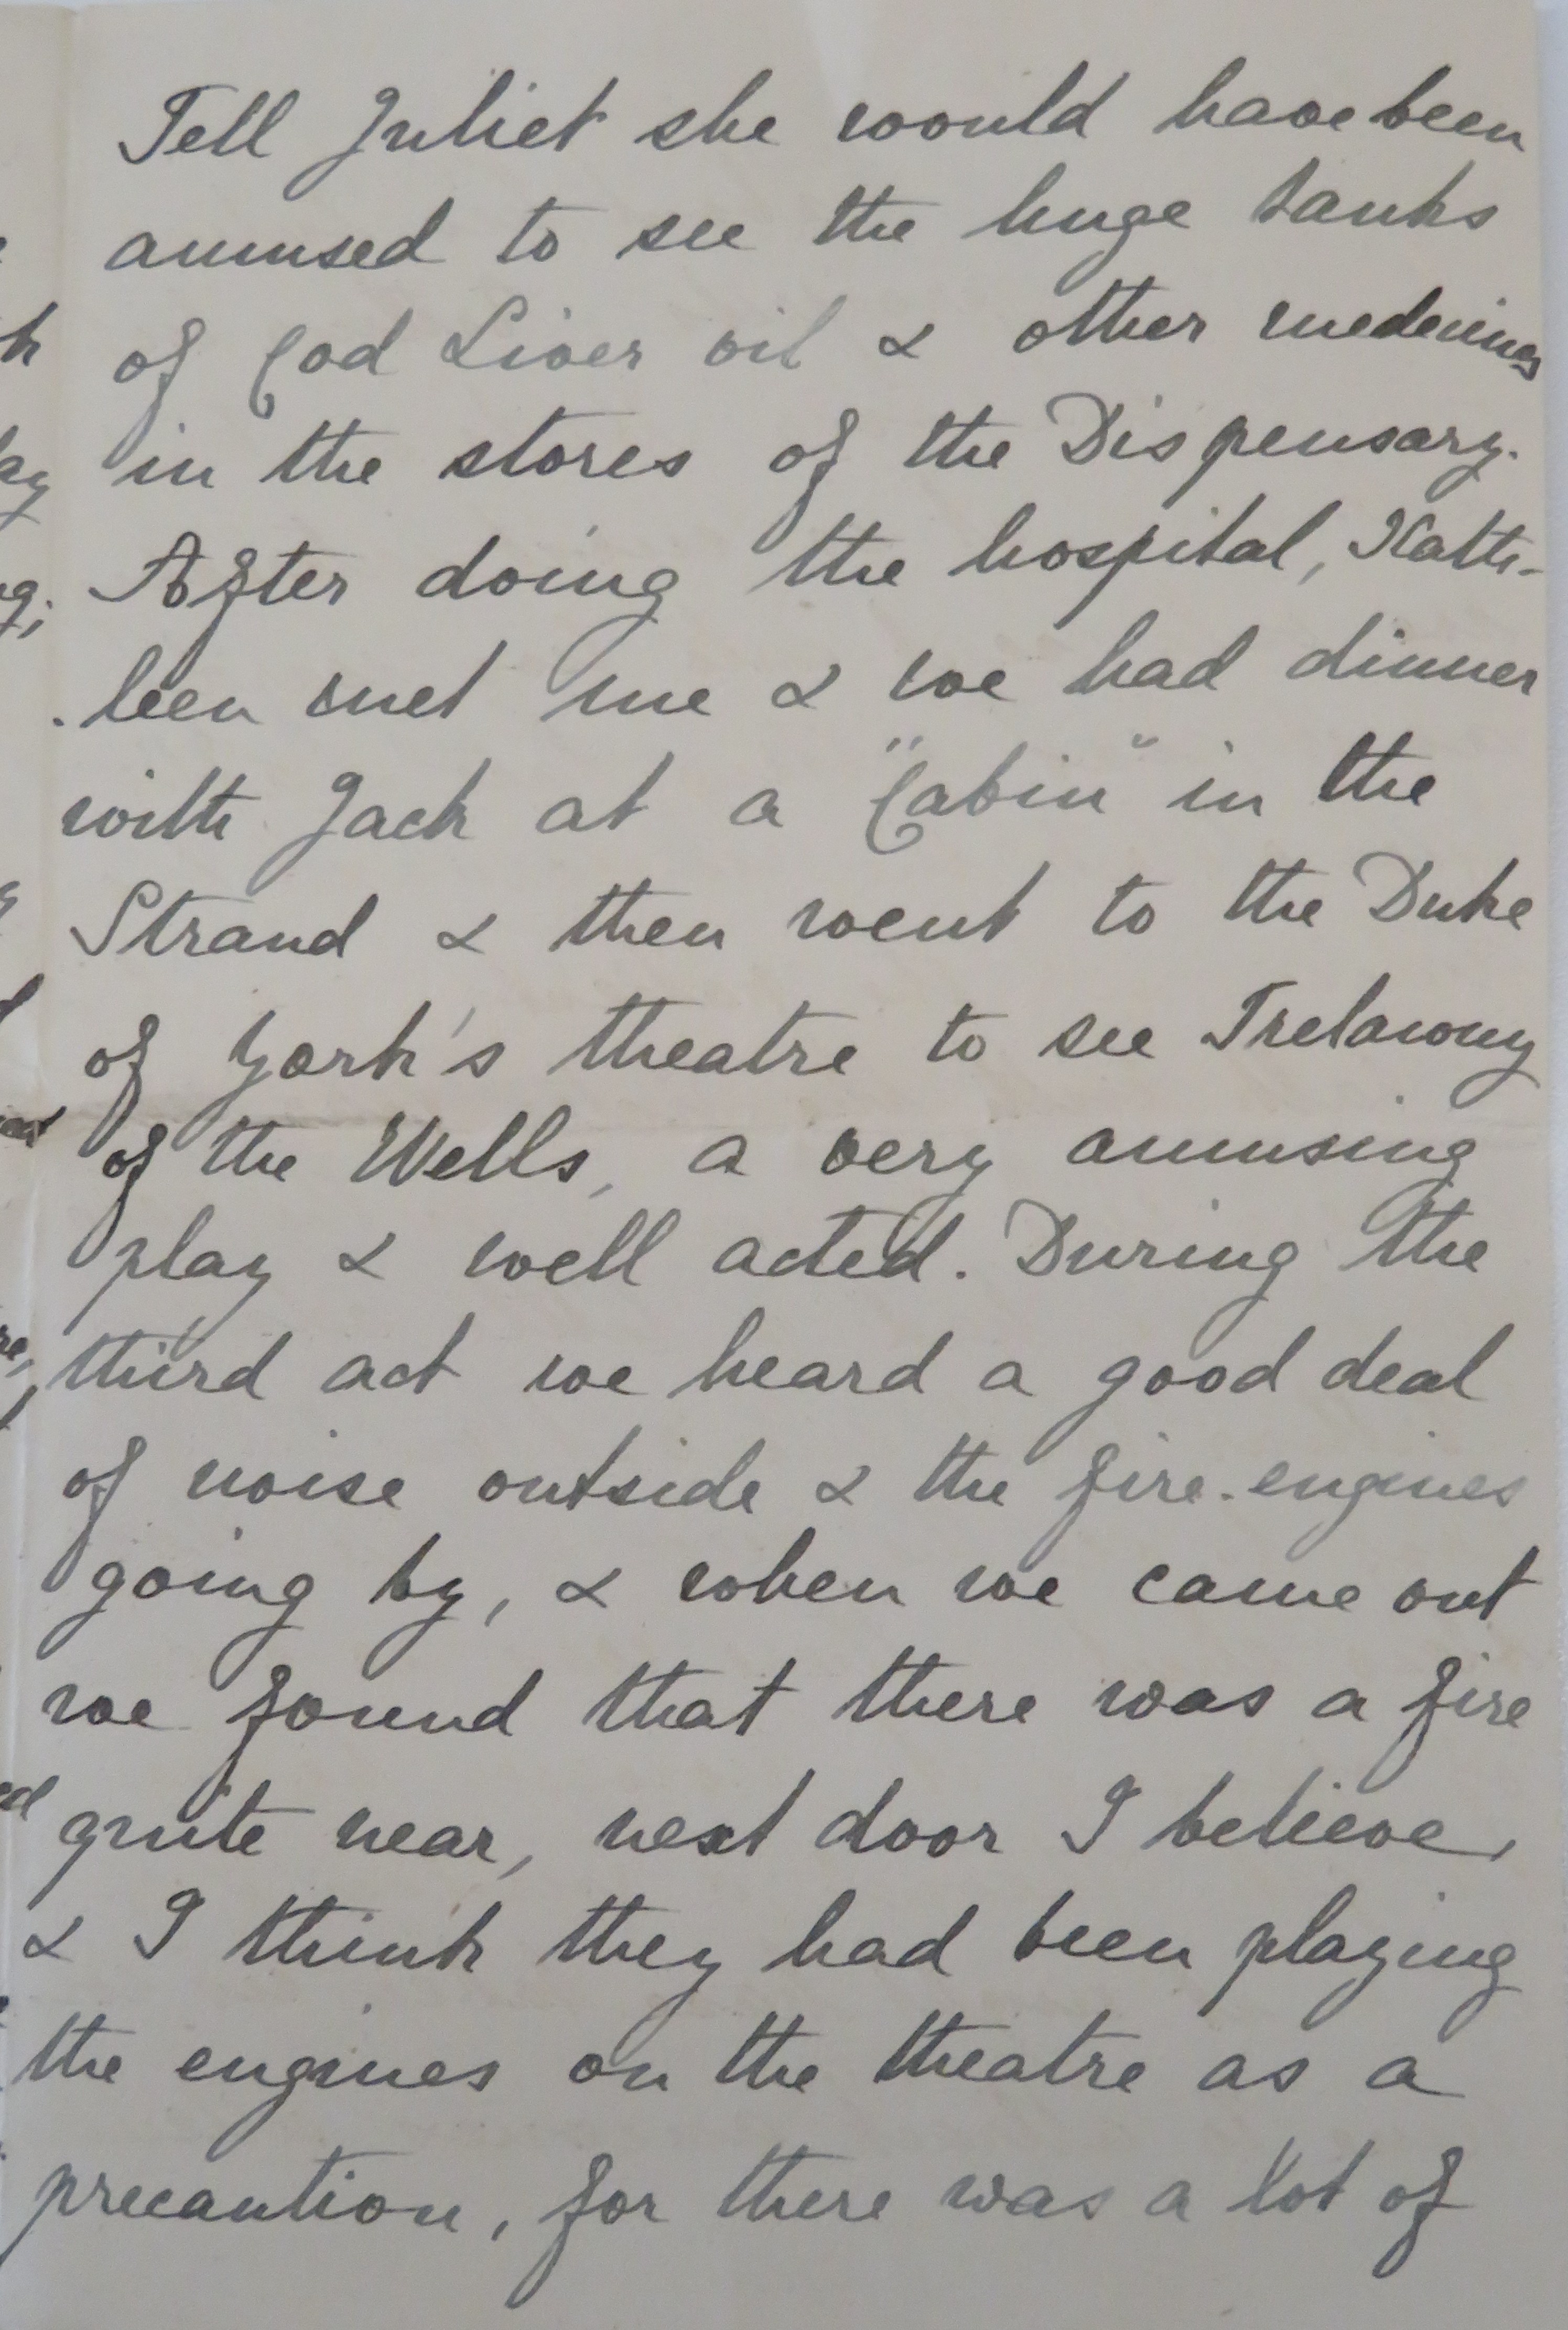 Tell Juliet she would have been
amused to see the huge tanks
of Cod Liver oil & other medecines
in the stores of the Dispensary.
After doing the hospital, Kath-
-leen met me & we had dinner
with Jack at a "Cabin" in the
Strand & then went to the Duke
of York's theatre to see Trelawny
of the Wells, a very amusing
play & well acted. During the
third act we heard a good deal
of noise outside & the fire-engines
going by, & when we came out
we found that there was a fire
quite near, next door I believe,
& I think they had been playing
the engines on the theatre as a
precaution, for there was a lot of